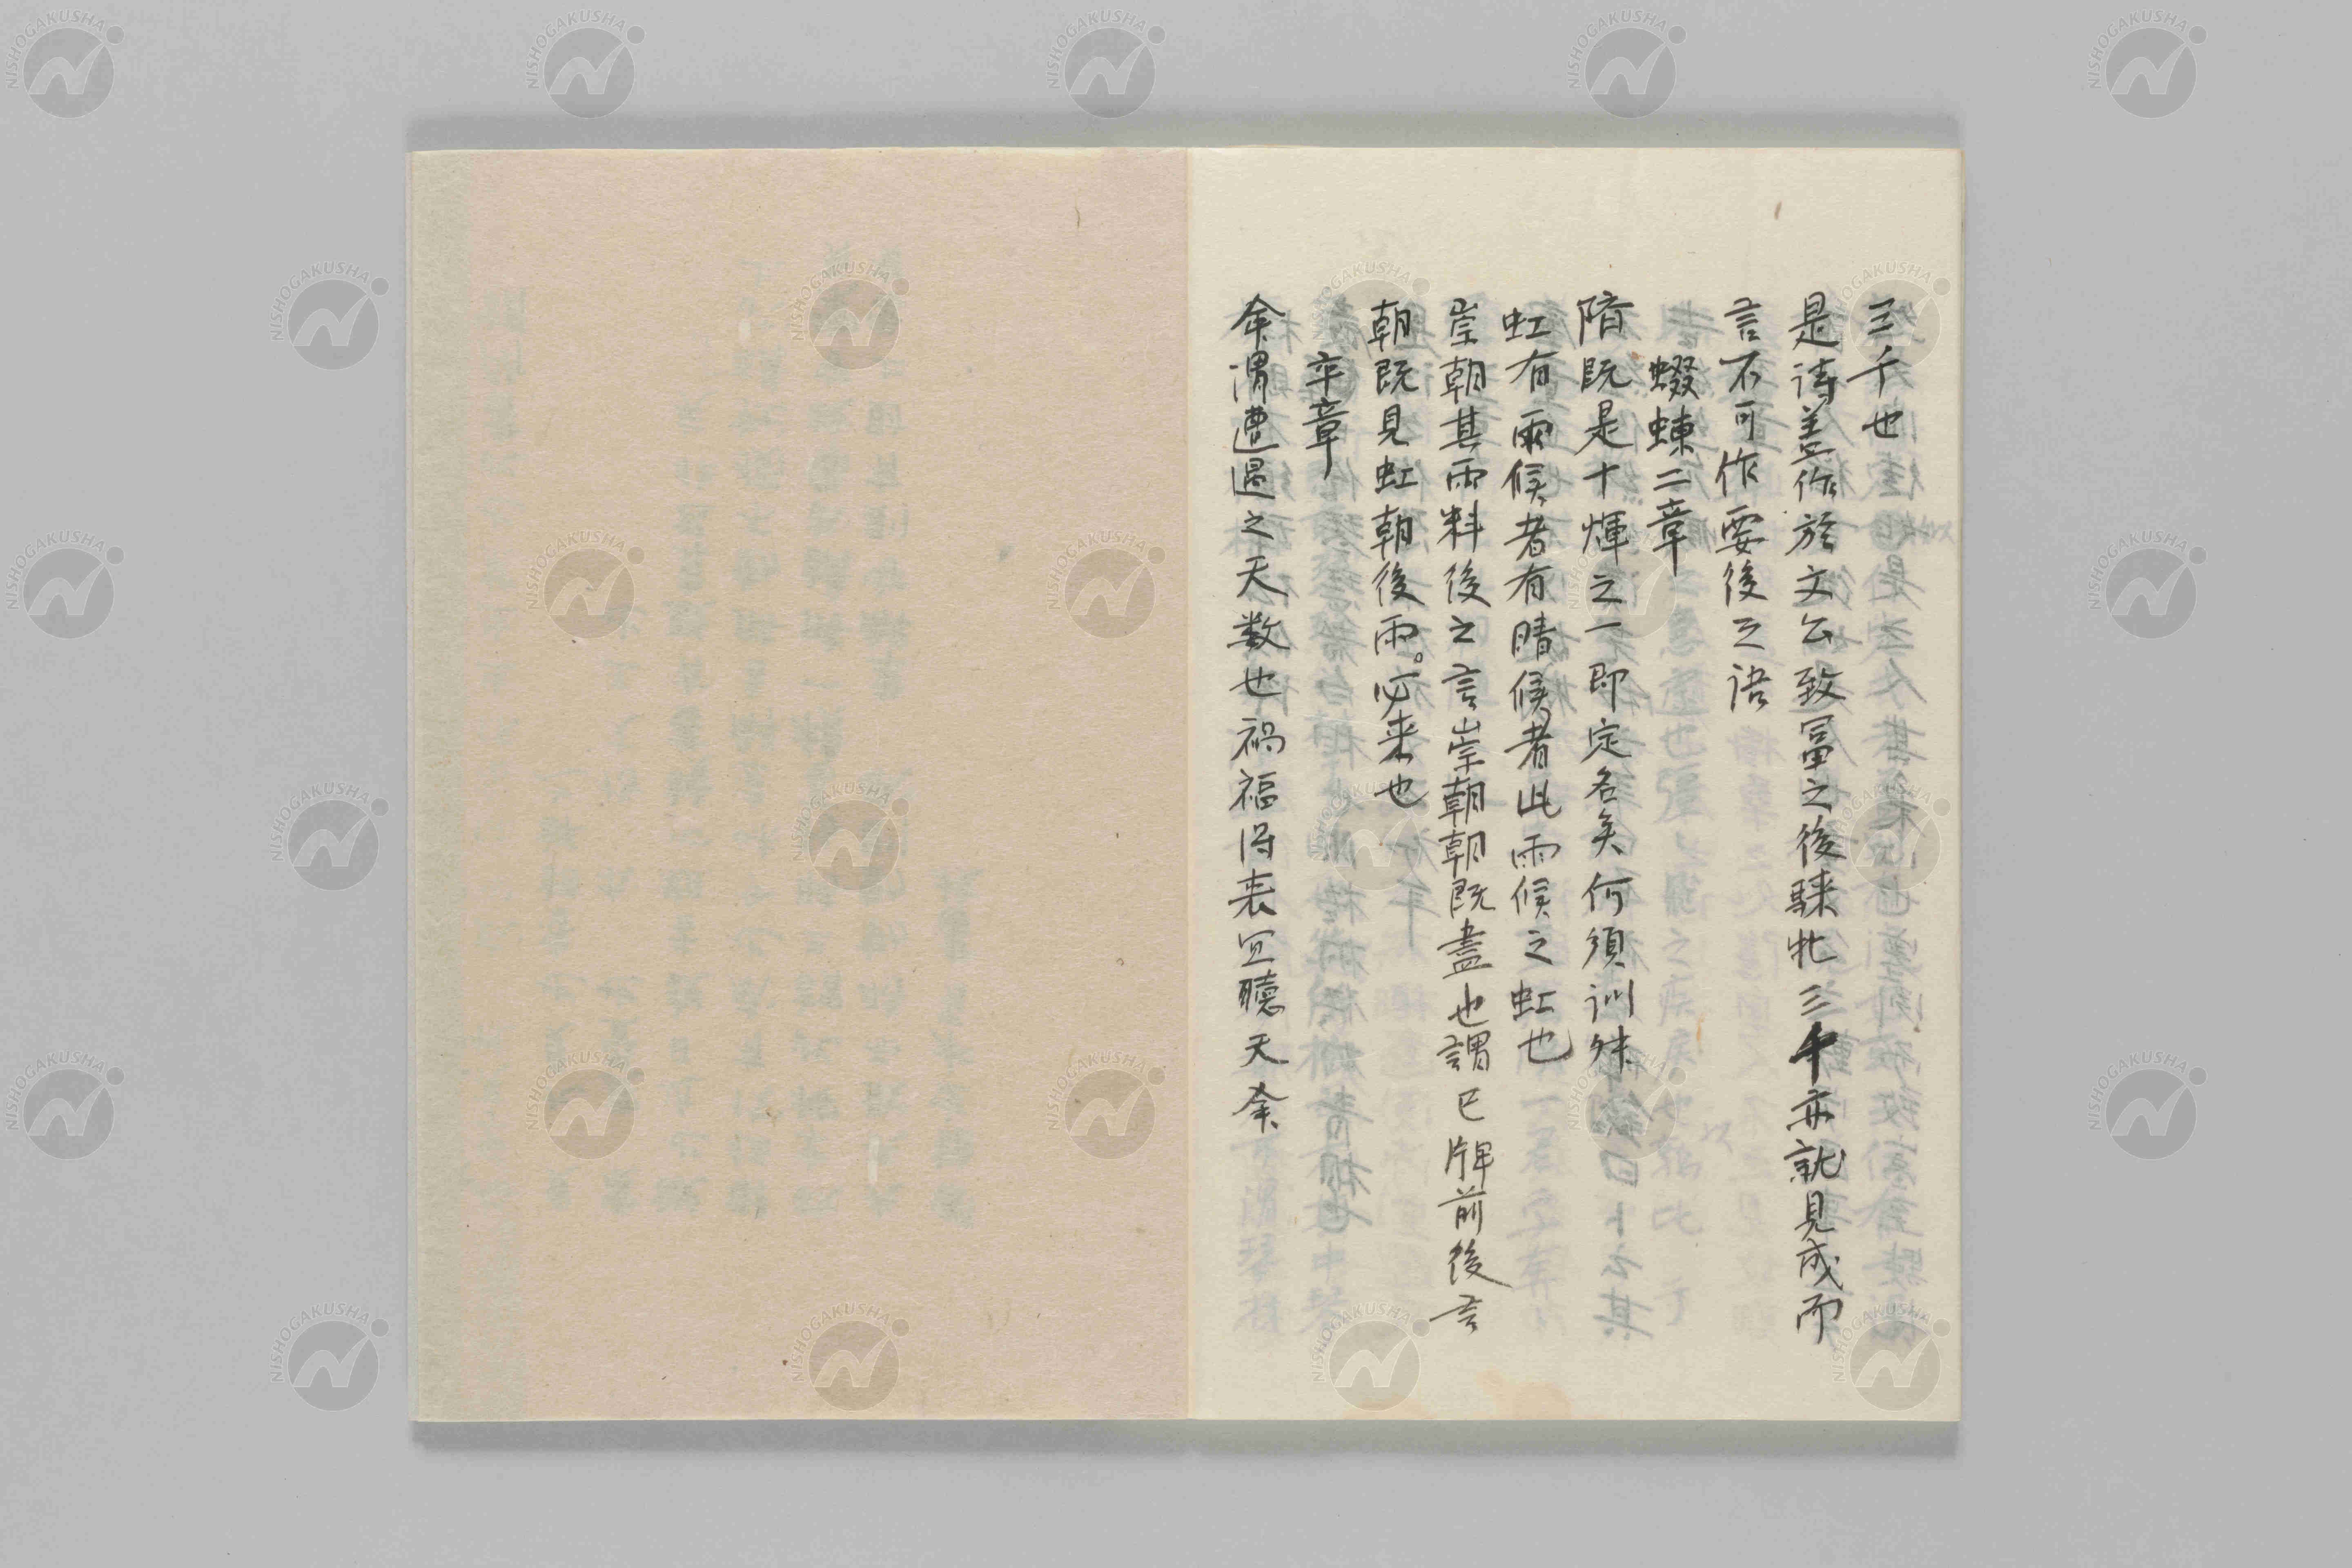 三千也
是詩盖作於文公致冨之後騋牝三千亦就見成而
言不可作要後之語
蝃蝀二章
隮既是十煇之一即定名矣何須訓升
虹有雨候者有晴候者此雨候之虹也
崇朝其雨料後之言崇朝朝既盡也謂巳牌前後言
朝既見虹朝後雨。必来也
卒章
命謂遭遇之天数也禍福得丧宜聴天命
NISHOGAKUSHA